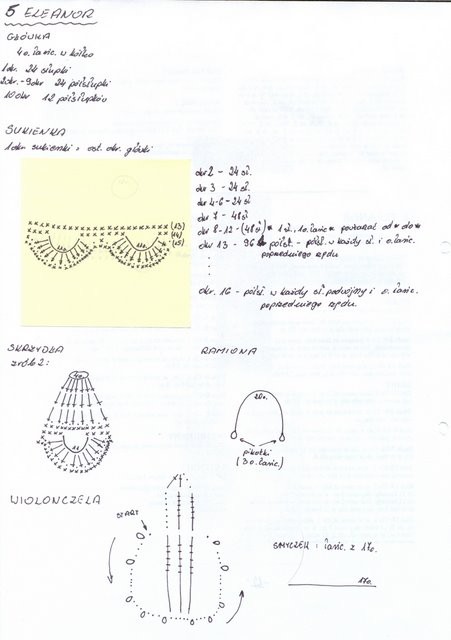 5 ELEANOR
GŁÓWKA
4o. łańc. w kółko
1okr. 24 słupki
2okr. - 9okr 24 półsłupki
10okr 12 półsłupków
SUKIENKA
1okr. sukienki = ost. okr. główki
okr 2 - 24 sł.
okr 3 - 24 sł.
okr 4-6 - 24 sł
okr 7 - 48 sł
okr 8-12 - (48 sł) * 1 sł, 1o. łańc * powtarzać od * do *
okr 13 - 96 półsł. - półsł. w każdy sł. i o. łańc.
poprzedniego rzędu
okr. 16 - półsł. w każdy sł. podwójny i o. łańc.
poprzedniego rzędu.
(13)
(14)
(15)
SKRZYDŁA
zrób 2:
4o.
11
RAMIONA
20o.
pikotki
(3 o. łańc.)
WIOLONCZELA
START
SMYCZEK : łańc. z 17o.
17o.